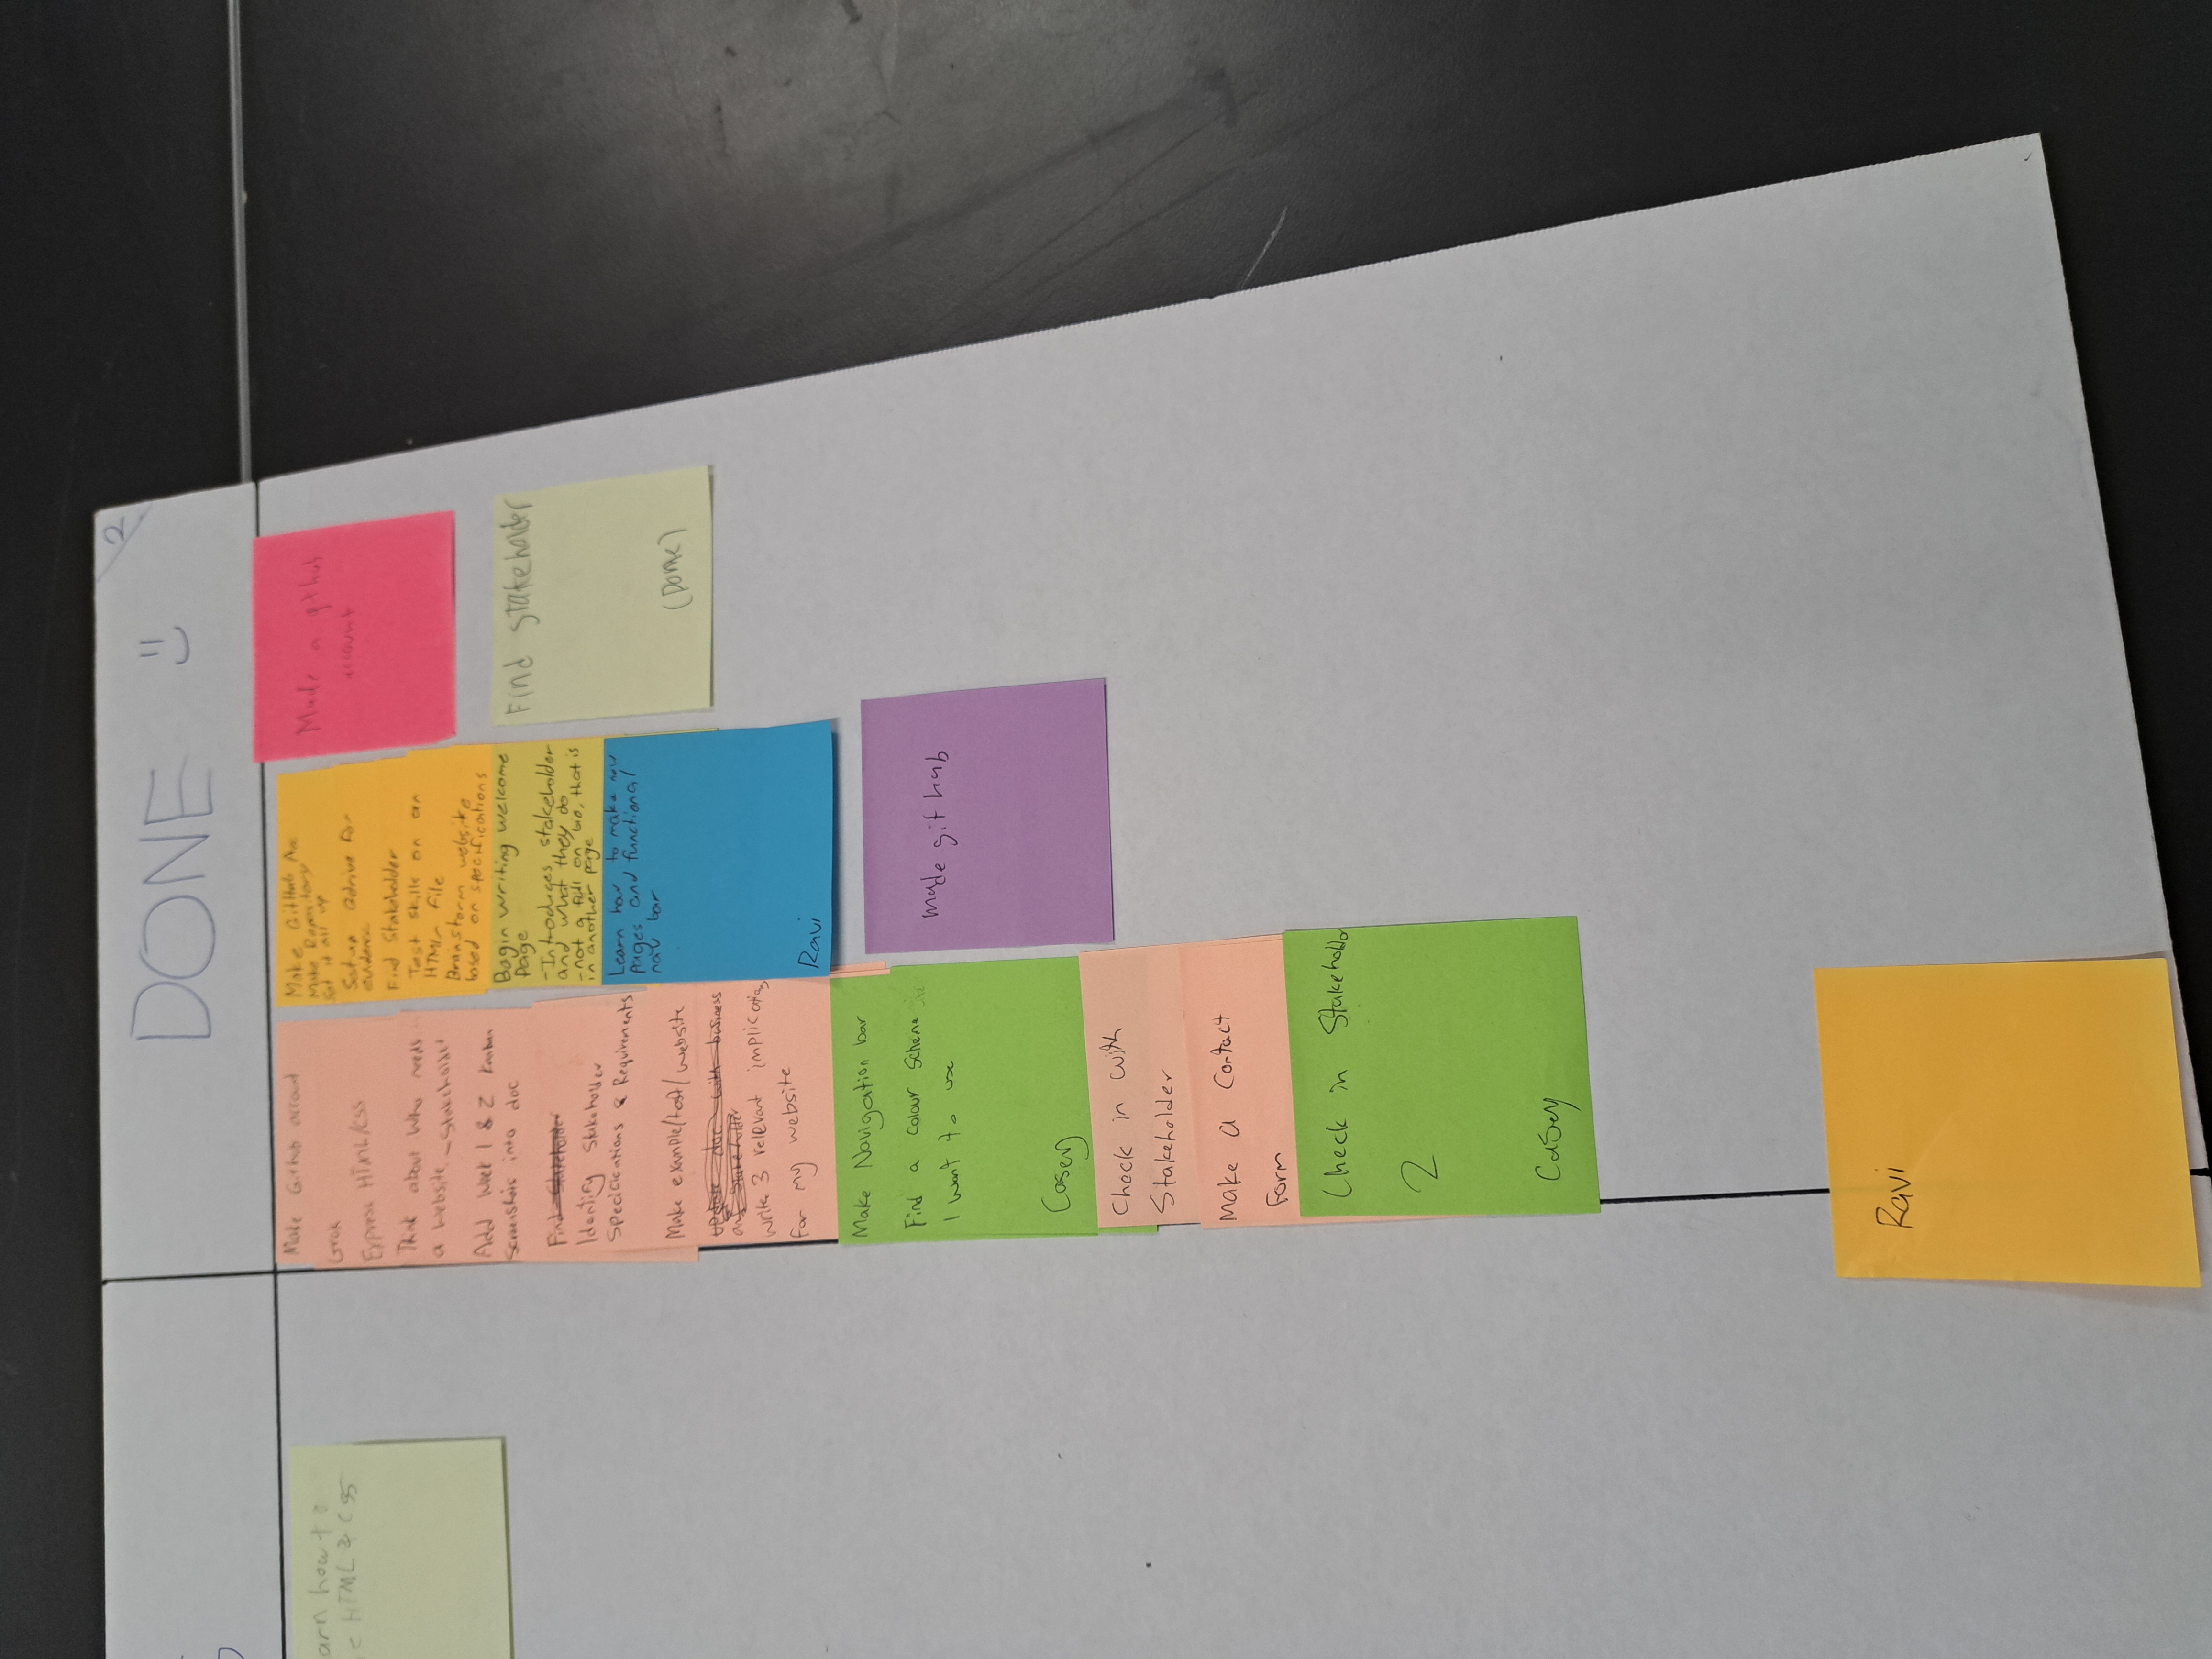 DONE
2
arn how t
HTML & CSS
Make Github account
Grok
Express HTML/CSS
Think about who needs
a website - Stakeholder
Add Week 1 & 2 Kanban
Screenshots into doc
Find Stakeholder
Identify Stakeholder
Specifications & Requirements
Make example/test/website
update doc with business
and Stakeholder
write 3 relevant implications
for my website
Make Navigation bar
Find a colour scheme
I want to use
Casey
Check in with
Stakeholder
Make a Contact
Form
Check in Stakeholder
2
Casey
Ravi
Make GitHub Acc
Make Repository
Set it all up
Setup Gdrive for
evidence
Find Stakeholder
Test skills on an
HTML file
Brainstorm website
based on specifications
Begin writing welcome
Page
-Introduces stakeholder
and what they do
-not a full on bio, that is
in another page
Learn how to make new
pages and functional
nav bar
Ravi
made git hub
Made a github
account
Find stakeholder
(Done)